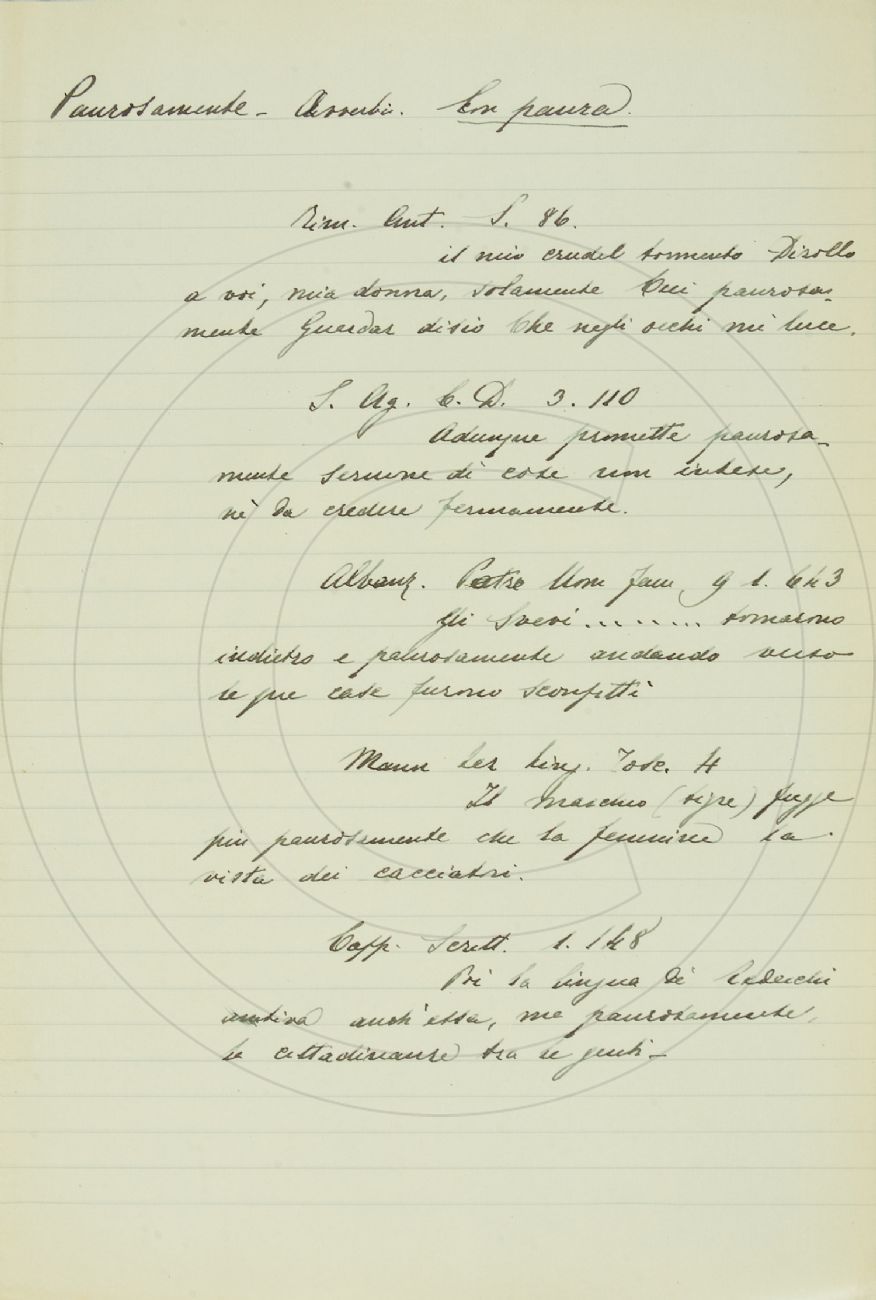 Paurosamente - Avverbio. Con paura.
Rim. Ant. S. 86.
il mio crudel tormento Dirollo
a voi, mia donna, solamente Cui paurosa-
mente Guardar disio Che negli occhi mi luce.
S. Ag. C. D. 3. 110
Adunque promette paurosa-
mente sermone di cose non intese,
nè da credere fermamente.
Albanz. Petr. Uom fam. 91. 643
Gli Svevi ........ tornarono
indietro e paurosamente andando verso
le case furono sconfitti
Mann Lez. Ling. Tosc. 4
Il maschio (tigre) fugge
più paurosamente che la femmina la
vista dei cacciatori.
Capp. Scritt. 1. 148
Poi la lingua di tedeschi
ambiva anch'essa, ma paurosamente,
la cittadinanza tra le genti -